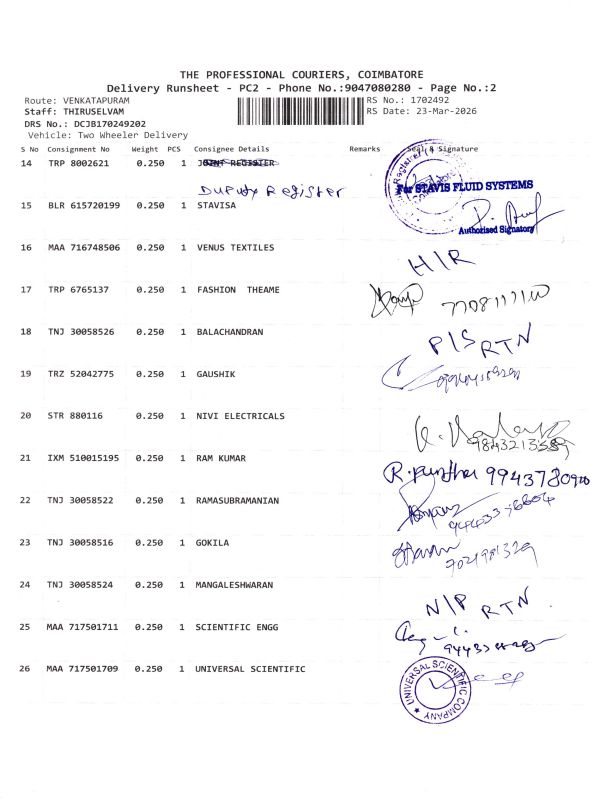 THE PROFESSIONAL COURIERS, COIMBATORE
Delivery Runsheet - PC2 - Phone No.:9047080280 - Page No.:2
Route: VENKATAPURAM
Staff: THIRUSELVAM
DRS No.: DCJB170249202
Vehicle: Two Wheeler Delivery
RS No.: 1702492
RS Date: 23-Mar-2026
S No Consignment No Weight PCS Consignee Details Remarks Seal & Signature
14 TRP 8002621 0.250 1 JOINT REGISTER
Duputy Register
For STAVIS FLUID SYSTEMS
15 BLR 615720199 0.250 1 STAVISA
Authorised Signatory
16 MAA 716748506 0.250 1 VENUS TEXTILES
H/R
17 TRP 6765137 0.250 1 FASHION THEAME
18 TNJ 30058526 0.250 1 BALACHANDRAN
P/S RTN
19 TRZ 52042775 0.250 1 GAUSHIK
20 STR 880116 0.250 1 NIVI ELECTRICALS
21 IXM 510015195 0.250 1 RAM KUMAR
22 TNJ 30058522 0.250 1 RAMASUBRAMANIAN
23 TNJ 30058516 0.250 1 GOKILA
24 TNJ 30058524 0.250 1 MANGALESHWARAN
N/P RTN
25 MAA 717501711 0.250 1 SCIENTIFIC ENGG
26 MAA 717501709 0.250 1 UNIVERSAL SCIENTIFIC
UNIVERSAL SCIENTIFIC COMPANY